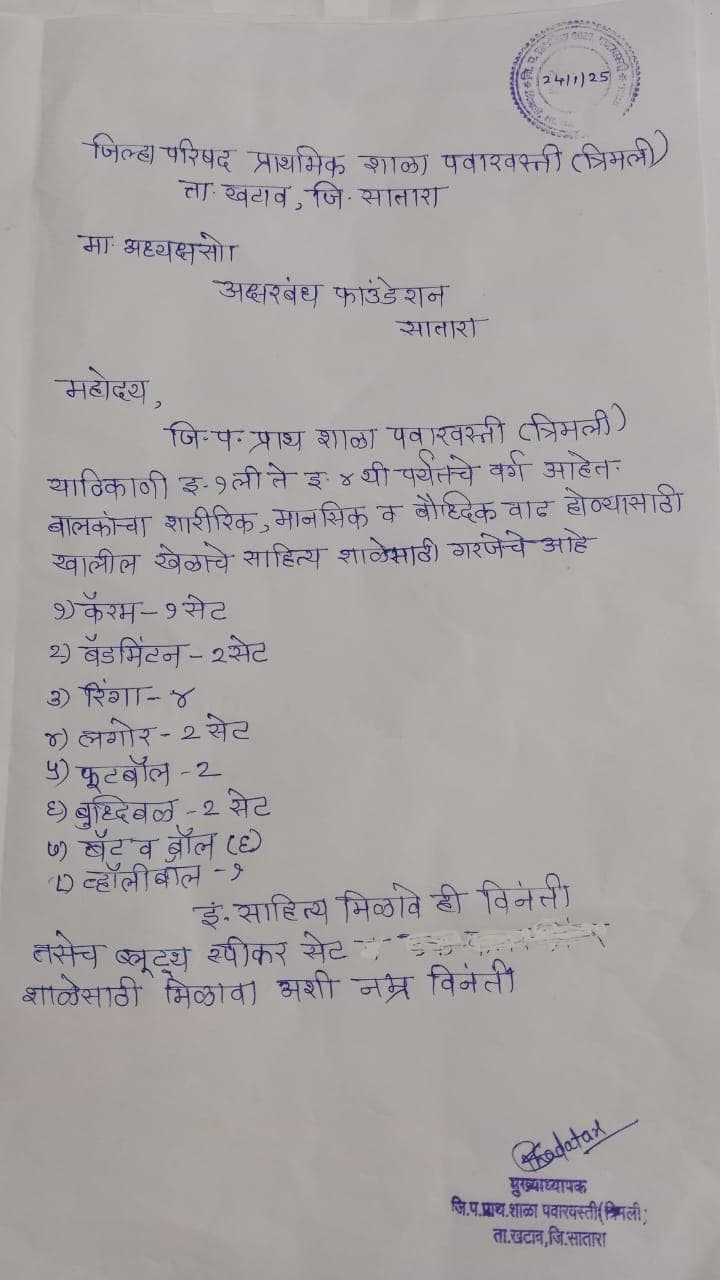 24/1/25
जिल्हा परिषद प्राथमिक शाळा पवारवस्ती (त्रिमली)
ता. खटाव, जि. सातारा
मा. अध्यक्षसो
अक्षरबंध फाउंडेशन
सातारा
महोदय,
जि. प. प्राथ शाळा पवारवस्ती (त्रिमली)
याठिकाणी इ. १ली ते इ. ४थी पर्यंतचे वर्ग आहेत.
बालकांचा शारीरिक, मानसिक व बौध्दिक वाढ होण्यासाठी
खालील खेळाचे साहित्य शाळेसाठी गरजेचे आहे
१) कॅरम - १ सेट
२) बॅडमिंटन - २ सेट
३) रिंगा - ४
४) लगोर - २ सेट
५) फूटबॉल - २
६) बुध्दिबळ - २ सेट
७) बॅट व बॉल (६)
८) व्हॉलीबॉल - १
इ. साहित्य मिळावे ही विनंती
तसेच ब्लूटूथ स्पीकर सेट -
शाळेसाठी मिळावा अशी नम्र विनंती
मुख्याध्यापक
जि.प.प्राथ.शाळा पवारवस्ती(त्रिमली)
ता.खटाव,जि.सातारा